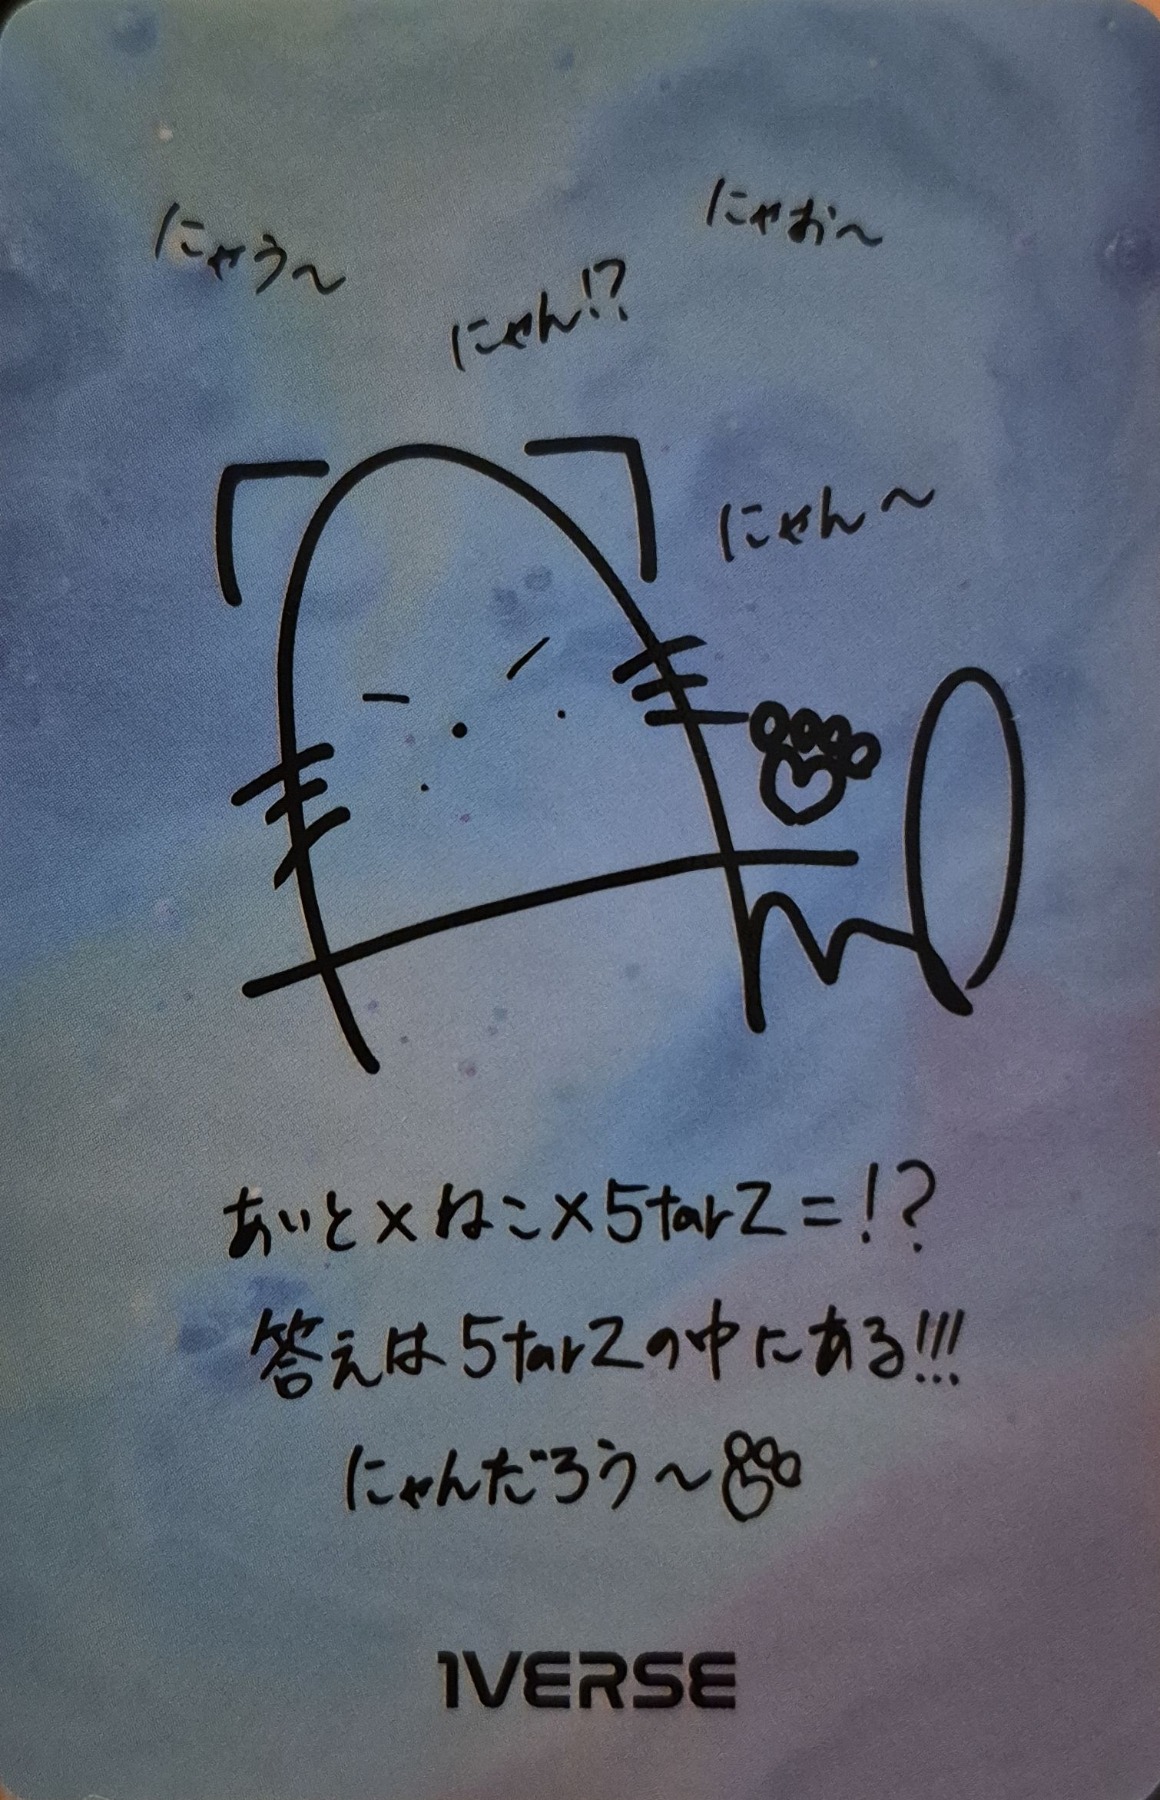 にゃう～
にゃお～
にゃん!?
にゃん～
あいと×ねこ×5tarZ=!?
答えは5tarZの中にある!!!
にゃんだろう～
1VERSE